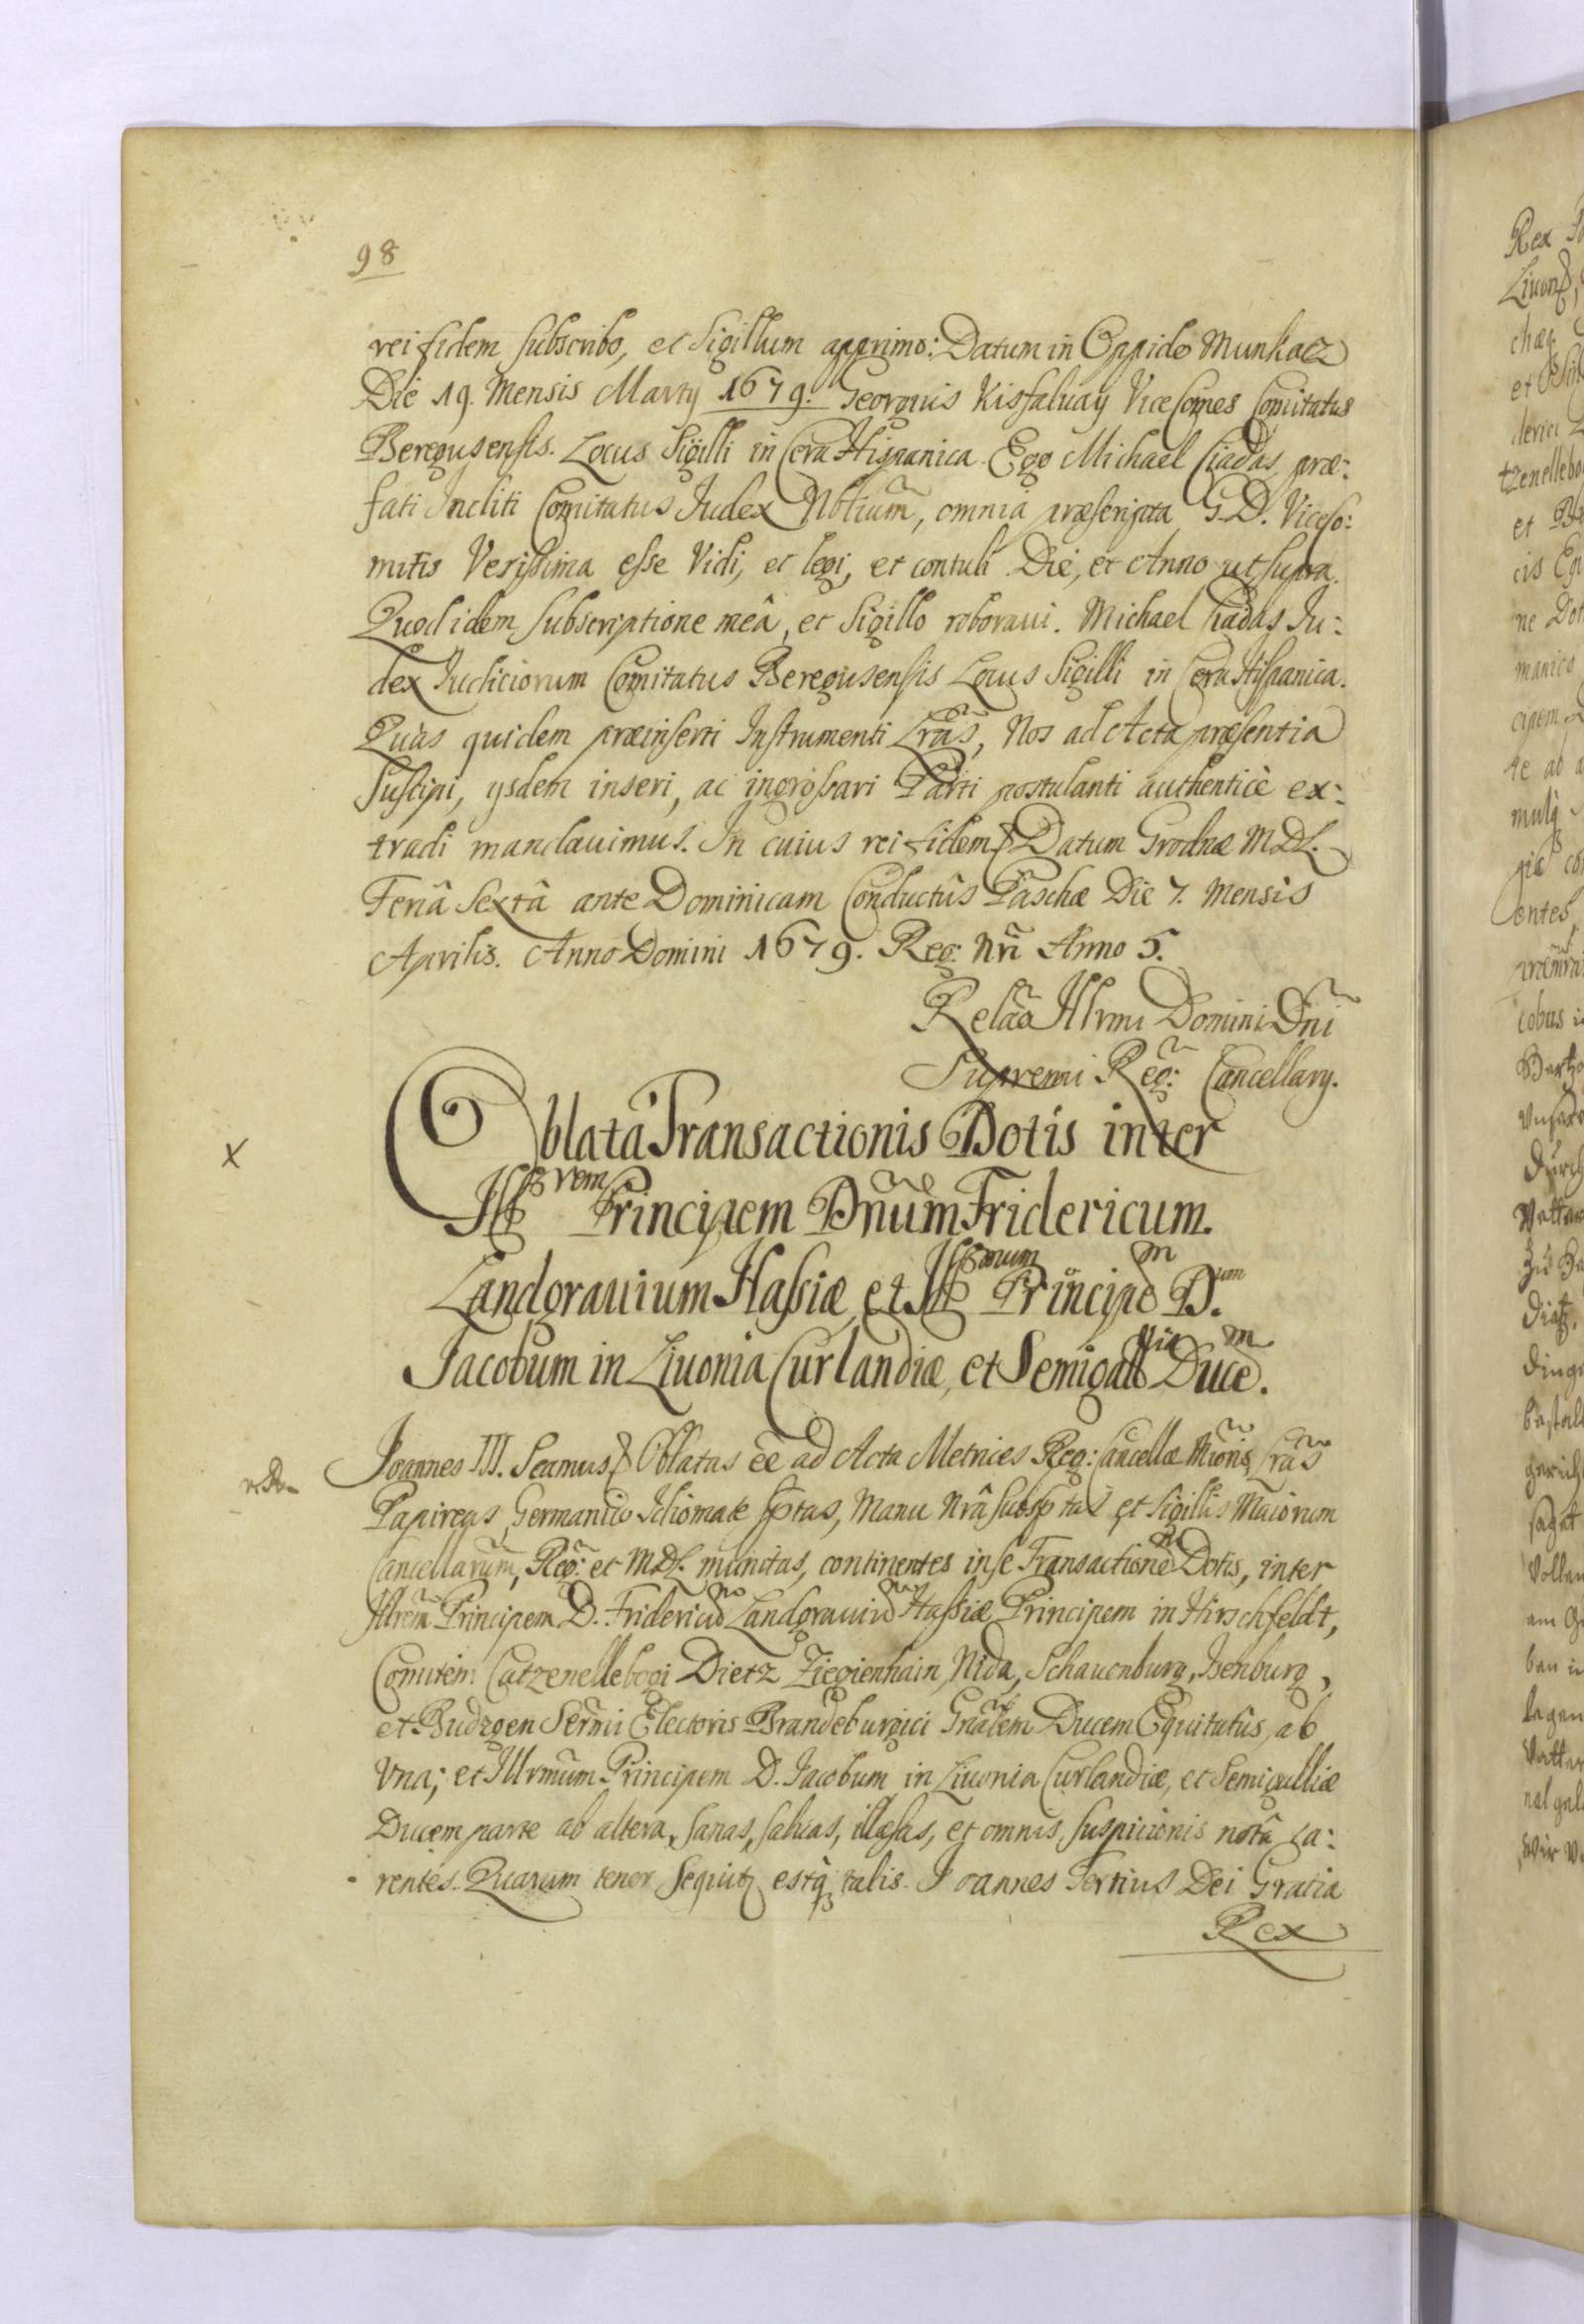 98
rei fidem subscribo, et Sigillum apprimo: Datum in Oppido Munkacz
Die 19. Mensis Martij 1679. Georgius Kisfaluay Vicecomes Comitatus
Beregusensis. Locus Sigilli in Cera Hispanica. Ego Michael Csadas præ:
fati Incliti Comitatus Iudex Nbliũm, omnia præscripta G. D. Viceco:
mitis Verissima esse Vidi, et legi, et contuli Die, et Anno ut supra.
Quod idem subscriptione meâ, et Sigillo roboraui. Michael Csadas Iu:
dex Iudiciorum Comitatus Beregusensis Locus Sigilli in Cera Hispanica.
Quas quidem præinserti Instrumenti Lrãs, Nos ad Acta præsentia
Suscipi, ijsdem inseri, ac ingrossari Parti postulanti authenticè ex:
tradi mandauimus. In cuius rei fidem Datum Grodnæ MDL.
Feriâ Sextâ ante Dominicam Conductûs Paschæ Die 7. Mensis
Aprilis. Anno Domini 1679. Reg: Nri Anno 5.
Relão Illrmi Domini Dñi
Supremi Reg: Cancellarij.
Oblata Transactionis Dotis inter
Illrem Principem Dñum Fridericum.
Landgrauium Hassiæ, et Illmum Principem D.um
Iacobum in Liuonia Curlandiæ, et Semigalliæ Ducem.
Joannes III. Seamus Oblatas eê ad Acta Metrices Reg: Cancellæ Mioris Lrãs
Papireas, Germanico Idiomate Sptas, Manu Nrâ subsptas et Sigillis Maiorum
Cancellarum, Reg: et MDL. munitas, continentes in se Transactionem Dotis, inter
Illrem Principem D. Fridericum Landgrauium Hassiæ Principem in Hirschfeldt,
Comitem Catzenellebogi Dietz Ziegienhain, Nida, Schauenburg, Isenburg,
et Budzgen Sermi Electoris Brandeburgici Gnãlem Ducem Equitatûs, ab
Vna; et Illrmum Principem D. Iacobum in Liuonia Curlandiæ, et Semigalliæ
Ducem parte ab altera, Sanas, saluas, illæsas, et omnis suspicionis notâ ca:
rentes. Quarum tenor Sequitr estq talis. Joannes Tertius Dei Gratia
Rex